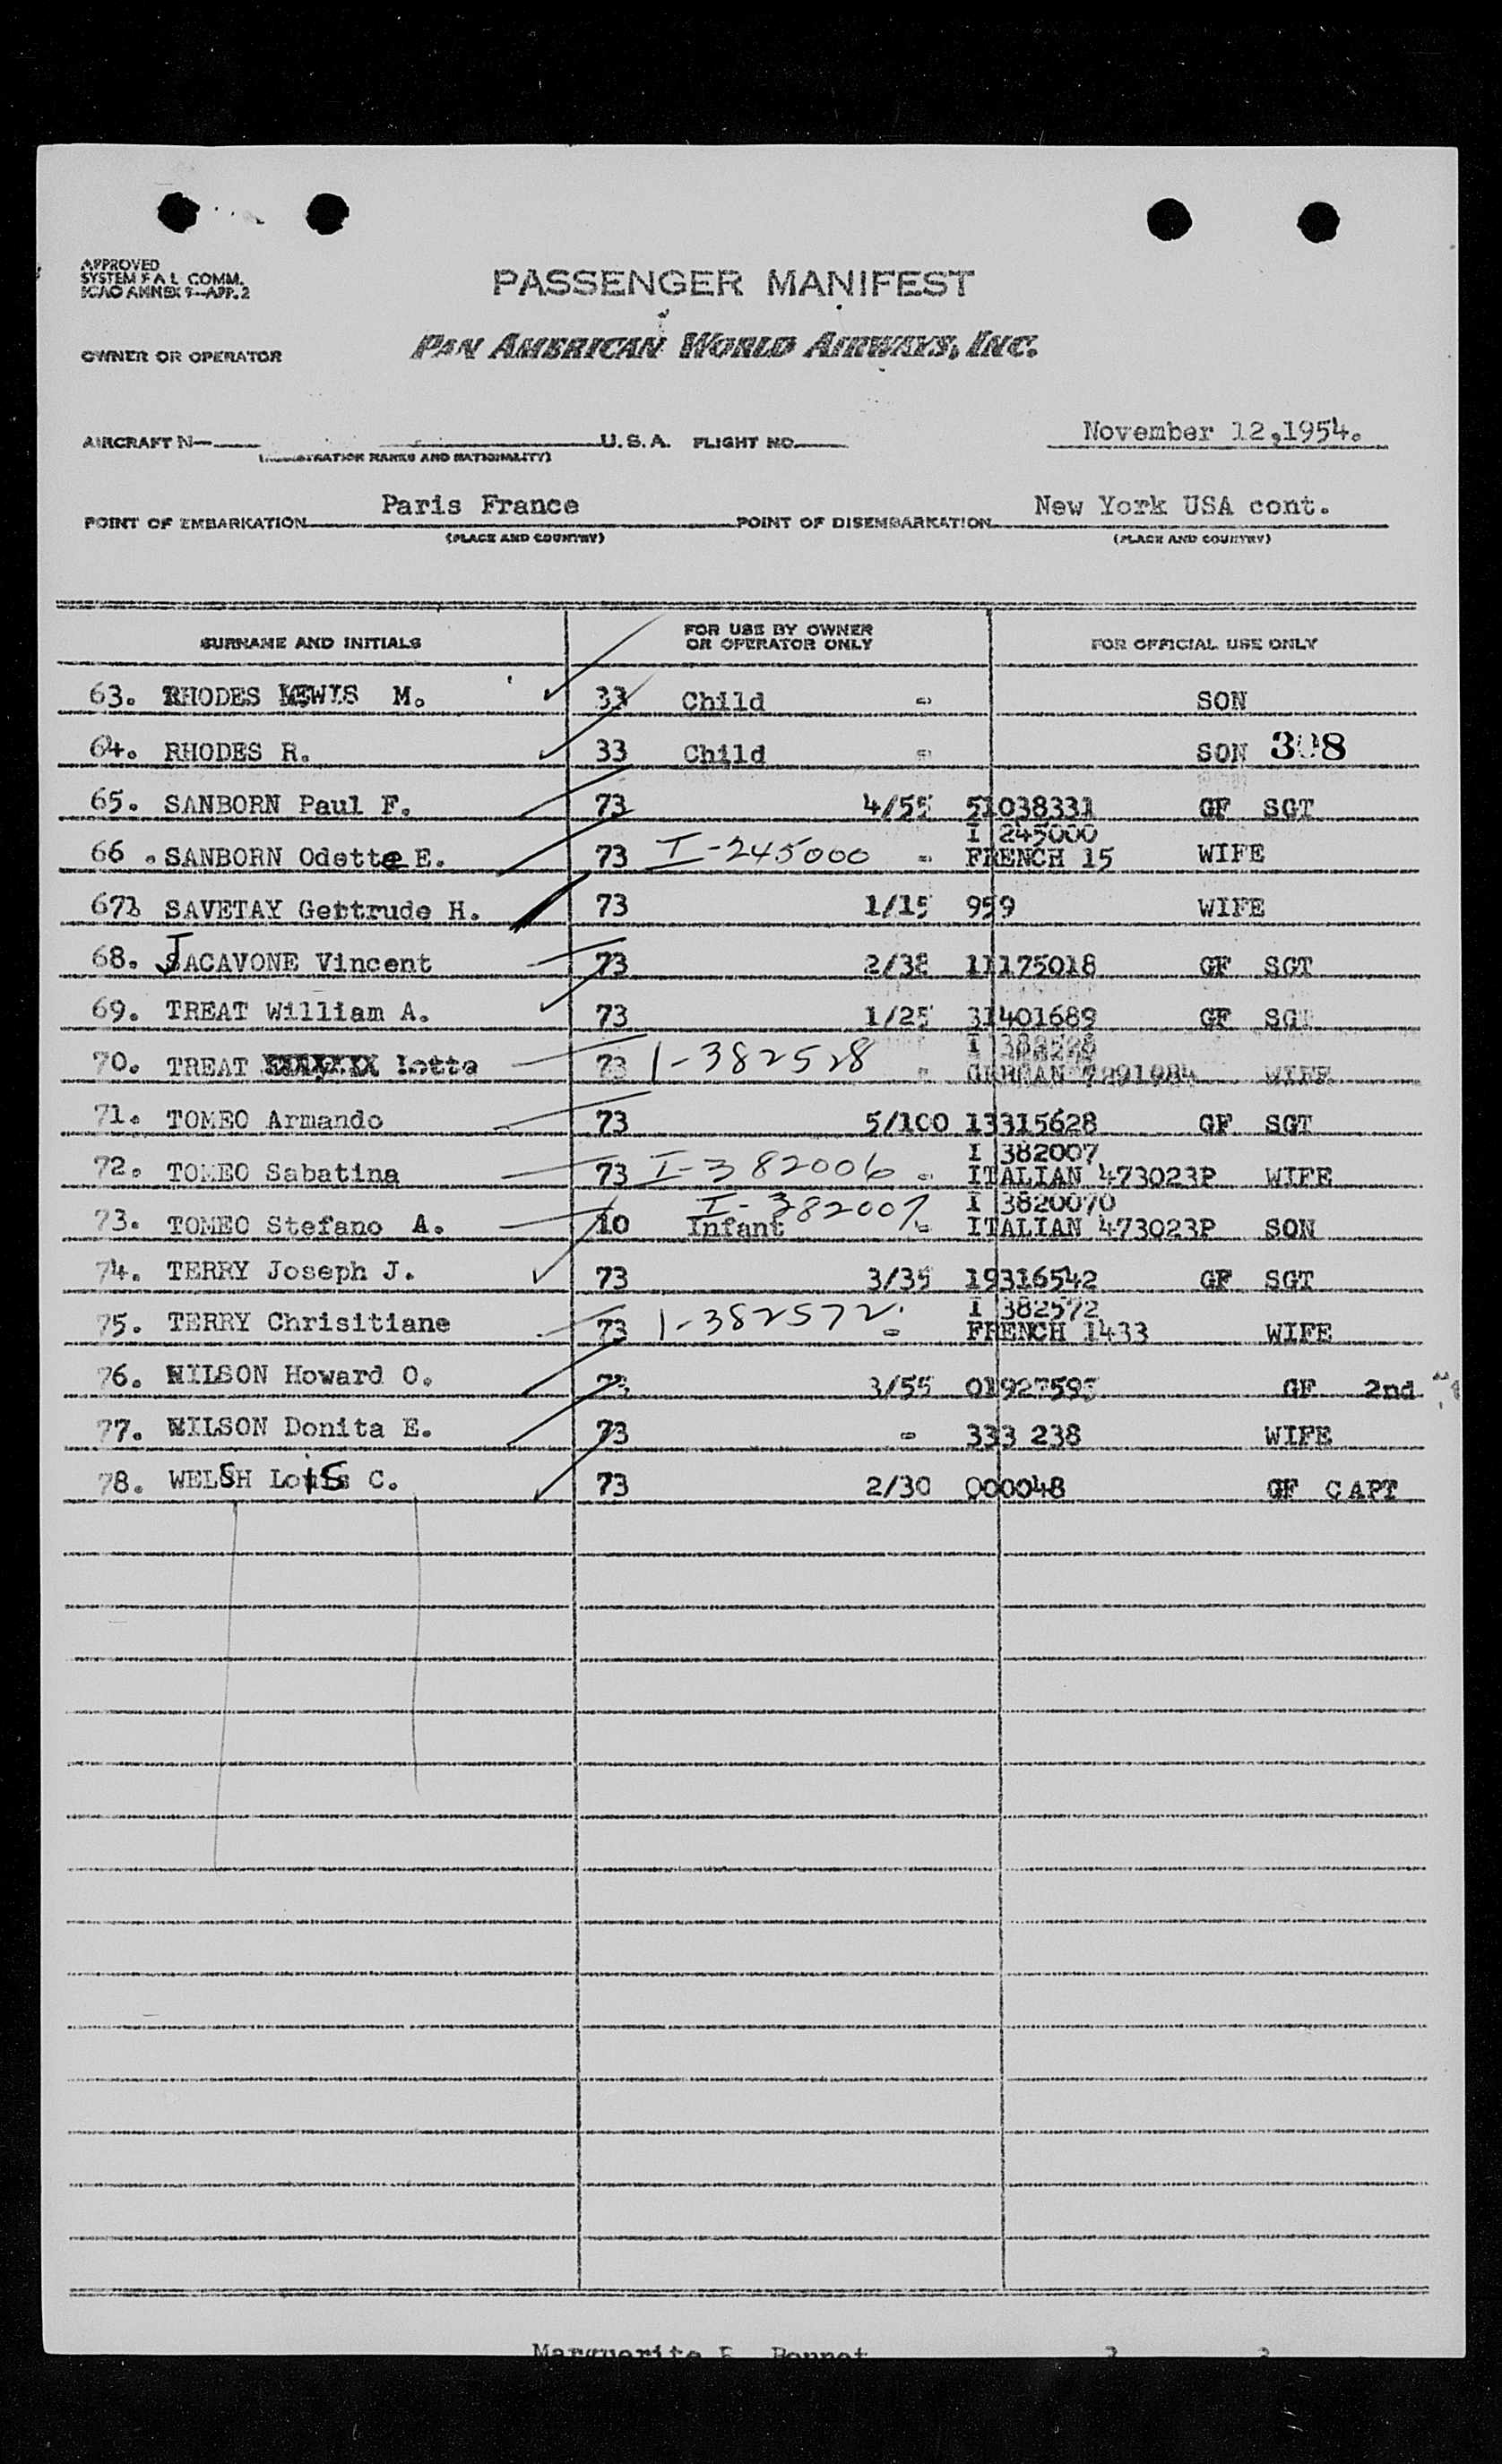 APPROVED
SYSTEM F A L COMM.
ICAO ANNEX 9—APP. 2
PASSENGER MANIFEST
OWNER OR OPERATOR PAN AMERICAN WORLD AIRWAYS, INC.
AIRCRAFT N— U. S. A. FLIGHT NO. November 12,1954.
(REGISTRATION MARKS AND NATIONALITY)
POINT OF EMBARKATION Paris France POINT OF DISEMBARKATION New York USA cont.
(PLACE AND COUNTRY) (PLACE AND COUNTRY)
SURNAME AND INITIALS FOR USE BY OWNER OR OPERATOR ONLY FOR OFFICIAL USE ONLY
63. RHODES LEWIS M. 33 Child - SON
64. RHODES R. 33 Child - SON 308
65. SANBORN Paul F. 73 4/55 51038331 GF SGT
I 245000
66. SANBORN Odette E. 73 I-245000 - FRENCH 15 WIFE
67. SAVETAY Gertrude H. 73 1/15 959 WIFE
68. JACAVONE Vincent 73 2/38 11175018 GF SGT
69. TREAT William A. 73 1/25 31401689 GF SGT
I 382528
70. TREAT Lotte 73 1-382528 - GERMAN 7291984 WIFE
71. TOMEO Armando 73 5/100 13315628 GF SGT
I 382007
72. TOMEO Sabatina 73 I-382006 - ITALIAN 473023P WIFE
I-382007 I 3820070
73. TOMEO Stefano A. 10 Infant - ITALIAN 473023P SON
74. TERRY Joseph J. 73 3/35 19316542 GF SGT
I 382572
75. TERRY Chrisitiane 73 1-382572 - FRENCH 1433 WIFE
76. WILSON Howard O. 73 3/55 GF 2nd
77. WILSON Donita E. 73 - 333 238 WIFE
78. WELSH Lois C. 73 2/30 000048 GF CAPT